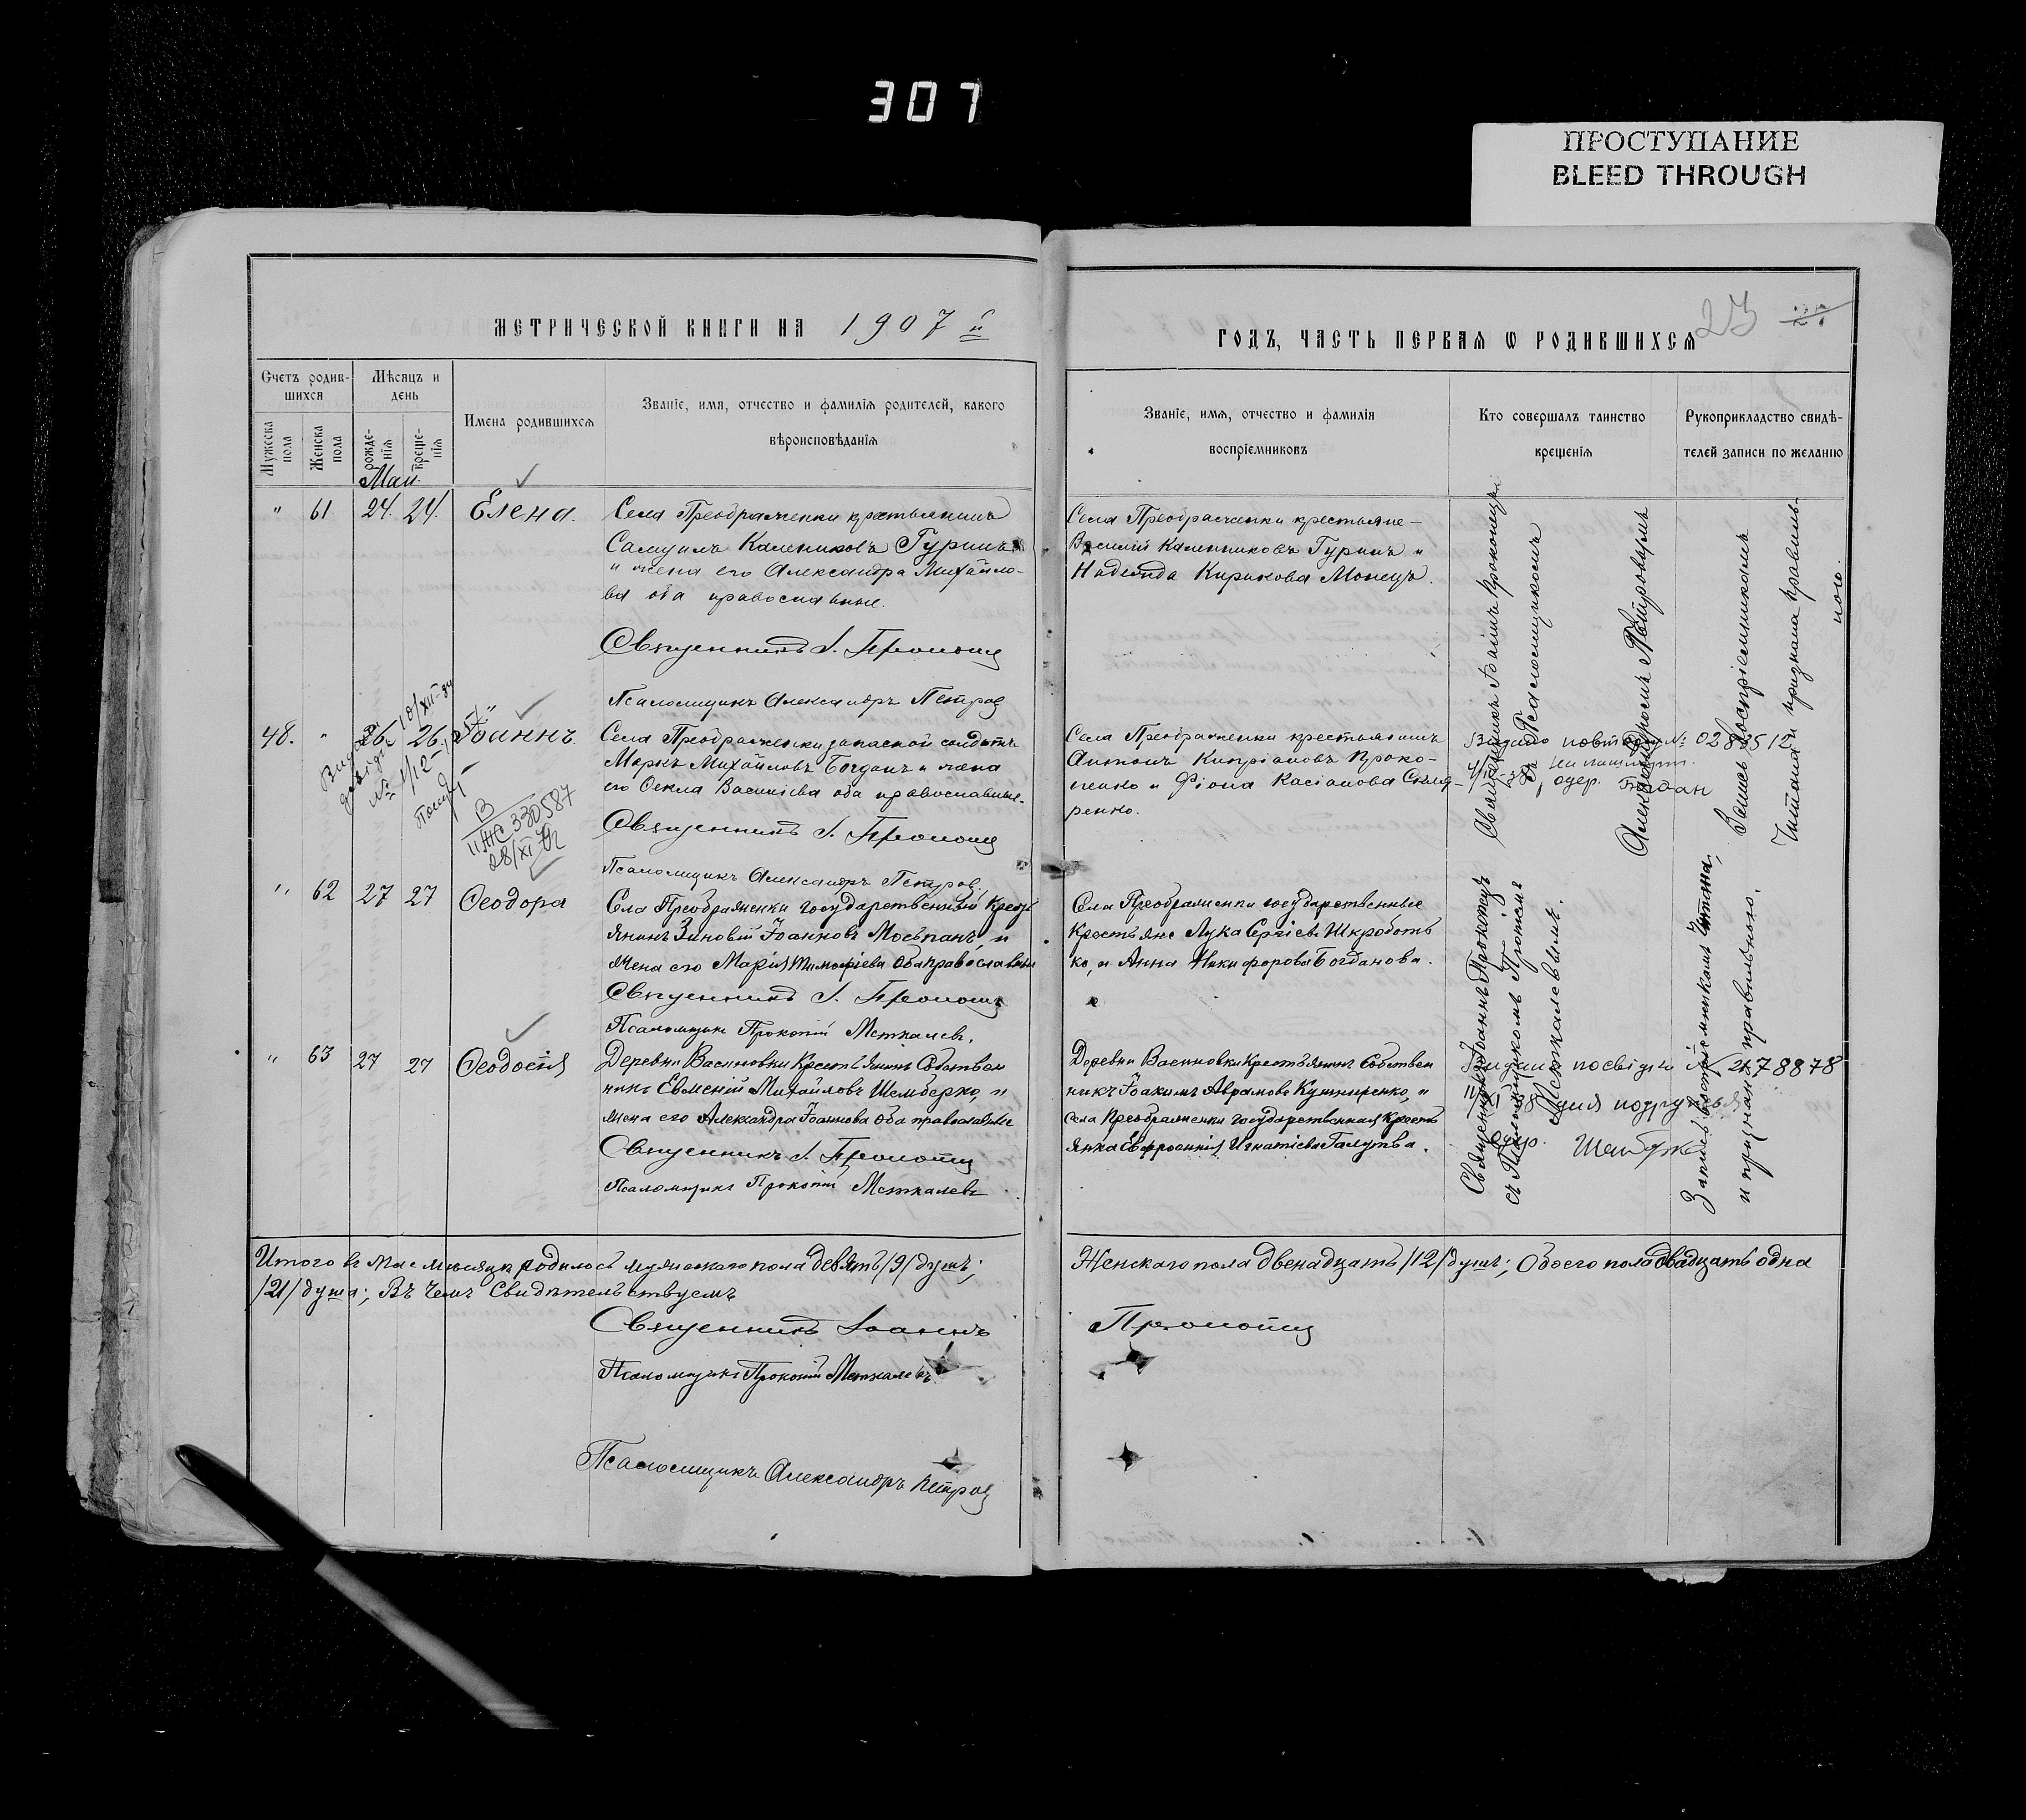 307
ПРОСТУПАНИЕ
BLEED THROUGH
МЕТРИЧЕСКОЙ КНИГИ НА 1907 й
ГОДЪ, ЧАСТЬ ПЕРВАЯ Ѡ РОДИВШИХСЯ
23 27
Счетъ родив-
шихся
Мужеска пола
Женска пола
Мѣсяцъ и
день
рожде-
нія
креще-
нія
Имена родившихся
Званіе, имя, отчество и фамилія родителей, какого
вѣроисповѣданія
Званіе, имя, отчество и фамилія
воспріемниковъ
Кто совершалъ таинство
крещенія
Рукоприкладство свидѣ-
телей записи по желанію
Май.
" 61 24. 24. Елена.
Села Преображенки крестьянинъ
Самуилъ Калениковъ Гуринъ
и жена его Александра Михайло-
ва оба православные.
Священникъ І.
Псаломщикъ Александръ Петров
Села Преображенки крестьяне-
Василій Каленниковъ Гуринъ и
Надежда Кирикова Монецъ.
Священникъ Іоаннъ
съ Псаломщикомъ
Александромъ Петровымъ
Запись воспріемникамъ
читана и признана правиль-
ного.
48. " 26. 26. Іоаннъ.
10/XII-
№ 1/12-
В
II ЖС 330587
28/XI
Села Преображенки запасной солдатъ
Маркъ Михайловъ Богданъ и жена
его Фекла Василіева оба православные.
Священникъ І.
Псаломщикъ Александръ Петров
Села Преображенки крестьянинъ
Антонъ Кипріановъ Проко-
пенко и Фіона Касіанова
ренко.
Видано повторн №
одер. Богдан
" 62 27 27 Ѳеодора
Села Преображенки государственный Кресть
янинъ Зиновій Іоанновъ Мосьпанъ, и
жена его Марія Тимофіева оба православные
Священникъ І.
Псаломщикъ Прокопій Меткалевъ.
Села Преображенки государственные
Крестьяне Лука Сергіевъ Шкроботь
ко, и Анна Никифорова Богданова.
Священникъ Іоаннъ
съ Псаломщикомъ
Меткалевымъ.
Запись воспріемникамъ читана,
и признана правильною.
" 63 27 27 Ѳеодосія
Деревни Васиновки Крестьянинъ Собствен
никъ Евменій Михайловъ Шемберко, и
жена его Александра Іоаннова оба православные
Священникъ І.
Псаломщикъ Прокопій Меткалевъ
Деревни Васиновки Крестьянинъ Собствен
никъ Іоакимъ Аврамовъ Кушниренко, и
села Преображенки государственная Кресть
янка Евфросинія Игнатіева Галутва.
78878
Итого въ Мае месяце родилось мужескаго пола девять /9/ душъ;
Женскаго пола двенадцать /12/ душъ; Обоего пола двадцать одна
/21/ душа; Въ чемъ Свидѣтельствуемъ
Священникъ Іоаннъ
Псаломщикъ Прокопій Меткалевъ
Псаломщикъ Александръ Петров